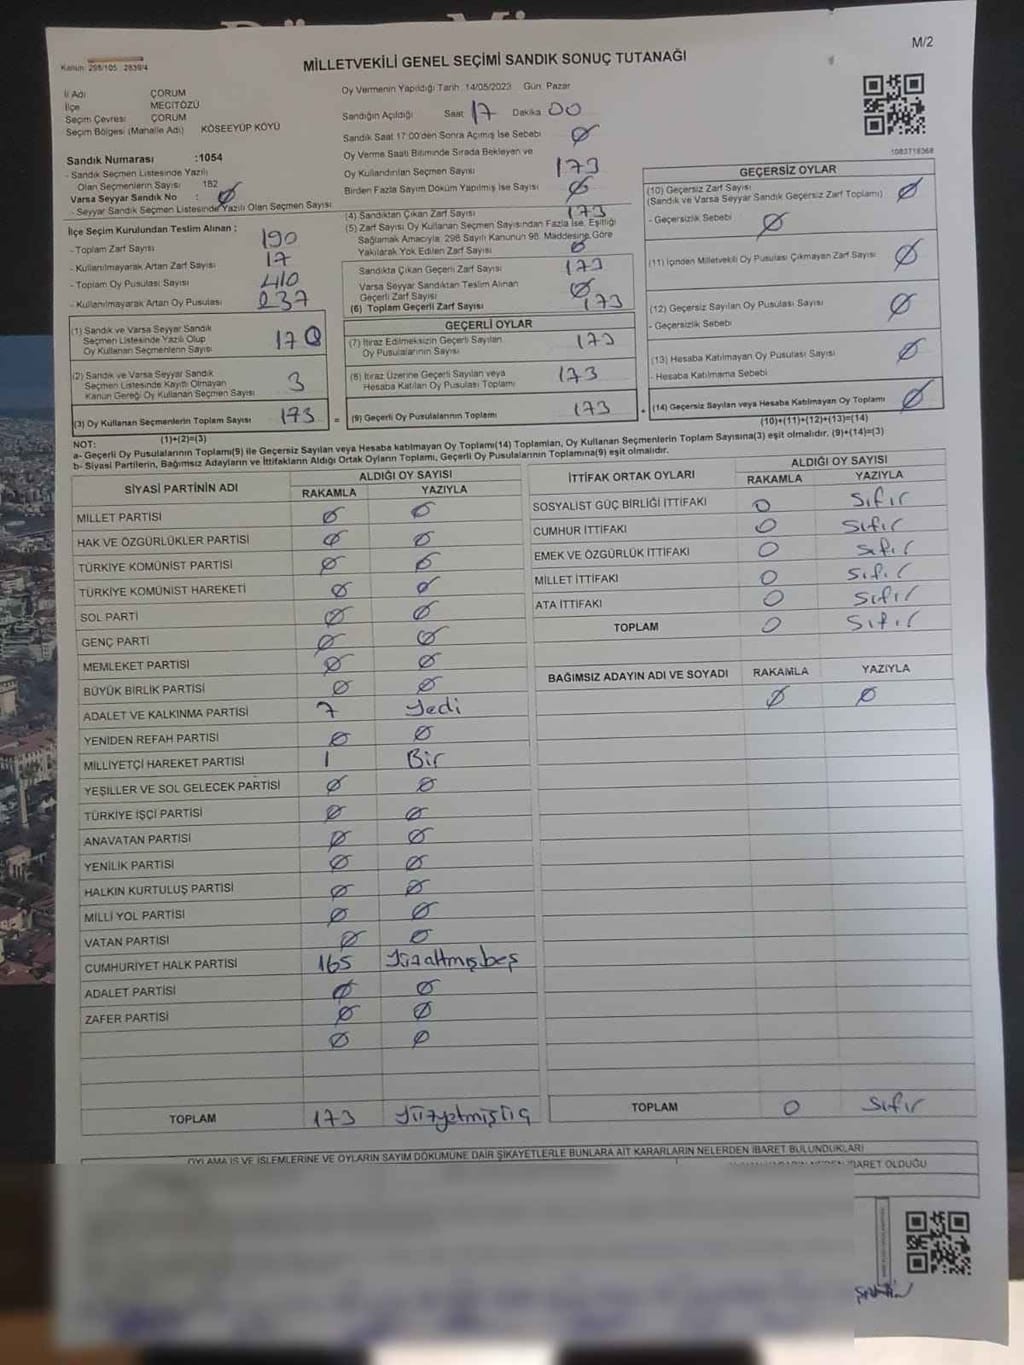 M/2
Kanun: 298/105 2839/4
MİLLETVEKİLİ GENEL SEÇİMİ SANDIK SONUÇ TUTANAĞI
İl Adı ÇORUM
İlçe MECİTÖZÜ
Seçim Çevresi ÇORUM
Seçim Bölgesi (Mahalle Adı) KÖSEEYÜP KÖYÜ
Sandık Numarası :1054
- Sandık Seçmen Listesinde Yazılı
Olan Seçmenlerin Sayısı 182
Varsa Seyyar Sandık No : Ø
- Seyyar Sandık Seçmen Listesinde Yazılı Olan Seçmen Sayısı
İlçe Seçim Kurulundan Teslim Alınan :
- Toplam Zarf Sayısı 190
- Kullanılmayarak Artan Zarf Sayısı 17
- Toplam Oy Pusulası Sayısı 410
- Kullanılmayarak Artan Oy Pusulası 237
(1) Sandık ve Varsa Seyyar Sandık
Seçmen Listesinde Yazılı Olup
Oy Kullanan Seçmenlerin Sayısı 170
(2) Sandık ve Varsa Seyyar Sandık
Seçmen Listesinde Kayıtlı Olmayan
Kanun Gereği Oy Kullanan Seçmen Sayısı 3
(3) Oy Kullanan Seçmenlerin Toplam Sayısı 173 =
(1)+(2)=(3)
Oy Vermenin Yapıldığı Tarih :14/05/2023 Gün: Pazar
Sandığın Açıldığı Saat 17 Dakika 00
Sandık Saat 17:00'den Sonra Açılmış İse Sebebi Ø
Oy Verme Saati Bitiminde Sırada Bekleyen ve
Oy Kullandırılan Seçmen Sayısı 173
Birden Fazla Sayım Döküm Yapılmış İse Sayısı Ø
(4) Sandıktan Çıkan Zarf Sayısı 173
(5) Zarf Sayısı Oy Kullanan Seçmen Sayısından Fazla İse, Eşitliği
Sağlamak Amacıyla; 298 Sayılı Kanunun 98. Maddesine Göre
Yakılarak Yok Edilen Zarf Sayısı Ø
Sandıkta Çıkan Geçerli Zarf Sayısı 173
Varsa Seyyar Sandıktan Teslim Alınan
Geçerli Zarf Sayısı Ø
(6) Toplam Geçerli Zarf Sayısı 173
GEÇERLİ OYLAR
(7) İtiraz Edilmeksizin Geçerli Sayılan
Oy Pusulalarının Sayısı 173
(8) İtiraz Üzerine Geçerli Sayılan veya
Hesaba Katılan Oy Pusulası Toplamı 173
(9) Geçerli Oy Pusulalarının Toplamı 173 +
1083718368
GEÇERSİZ OYLAR
(10) Geçersiz Zarf Sayısı Ø
(Sandık ve Varsa Seyyar Sandık Geçersiz Zarf Toplamı)
- Geçersizlik Sebebi Ø
(11) İçinden Milletvekili Oy Pusulası Çıkmayan Zarf Sayısı Ø
(12) Geçersiz Sayılan Oy Pusulası Sayısı Ø
- Geçersizlik Sebebi
(13) Hesaba Katılmayan Oy Pusulası Sayısı Ø
- Hesaba Katılmama Sebebi
(14) Geçersiz Sayılan veya Hesaba Katılmayan Oy Toplamı Ø
(10)+(11)+(12)+(13)=(14)
NOT:
a- Geçerli Oy Pusulalarının Toplamı(9) ile Geçersiz Sayılan veya Hesaba katılmayan Oy Toplamı(14) Toplamları, Oy Kullanan Seçmenlerin Toplam Sayısına(3) eşit olmalıdır. (9)+(14)=(3)
b- Siyasi Partilerin, Bağımsız Adayların ve İttifakların Aldığı Ortak Oyların Toplamı, Geçerli Oy Pusulalarının Toplamına(9) eşit olmalıdır.
SİYASİ PARTİNİN ADI ALDIĞI OY SAYISI
RAKAMLA YAZIYLA
MİLLET PARTİSİ Ø Ø
HAK VE ÖZGÜRLÜKLER PARTİSİ Ø Ø
TÜRKİYE KOMÜNİST PARTİSİ Ø Ø
TÜRKİYE KOMÜNİST HAREKETİ Ø Ø
SOL PARTİ Ø Ø
GENÇ PARTİ Ø Ø
MEMLEKET PARTİSİ Ø Ø
BÜYÜK BİRLİK PARTİSİ Ø Ø
ADALET VE KALKINMA PARTİSİ 7 Yedi
YENİDEN REFAH PARTİSİ Ø Ø
MİLLİYETÇİ HAREKET PARTİSİ 1 Bir
YEŞİLLER VE SOL GELECEK PARTİSİ Ø Ø
TÜRKİYE İŞÇİ PARTİSİ Ø Ø
ANAVATAN PARTİSİ Ø Ø
YENİLİK PARTİSİ Ø Ø
HALKIN KURTULUŞ PARTİSİ Ø Ø
MİLLİ YOL PARTİSİ Ø Ø
VATAN PARTİSİ Ø Ø
CUMHURİYET HALK PARTİSİ 165 Yüzaltmışbeş
ADALET PARTİSİ Ø Ø
ZAFER PARTİSİ Ø Ø
Ø Ø
TOPLAM 173 Yüzyetmişüç
İTTİFAK ORTAK OYLARI ALDIĞI OY SAYISI
RAKAMLA YAZIYLA
SOSYALİST GÜÇ BİRLİĞİ İTTİFAKI 0 Sıfır
CUMHUR İTTİFAKI 0 Sıfır
EMEK VE ÖZGÜRLÜK İTTİFAKI 0 Sıfır
MİLLET İTTİFAKI 0 Sıfır
ATA İTTİFAKI 0 Sıfır
TOPLAM 0 Sıfır
BAĞIMSIZ ADAYIN ADI VE SOYADI RAKAMLA YAZIYLA
Ø Ø
TOPLAM 0 Sıfır
OYLAMA İŞ VE İŞLEMLERİNE VE OYLARIN SAYIM DÖKÜMÜNE DAİR ŞİKAYETLERLE BUNLARA AİT KARARLARIN NELERDEN İBARET BULUNDUKLARI
İBARET OLDUĞU